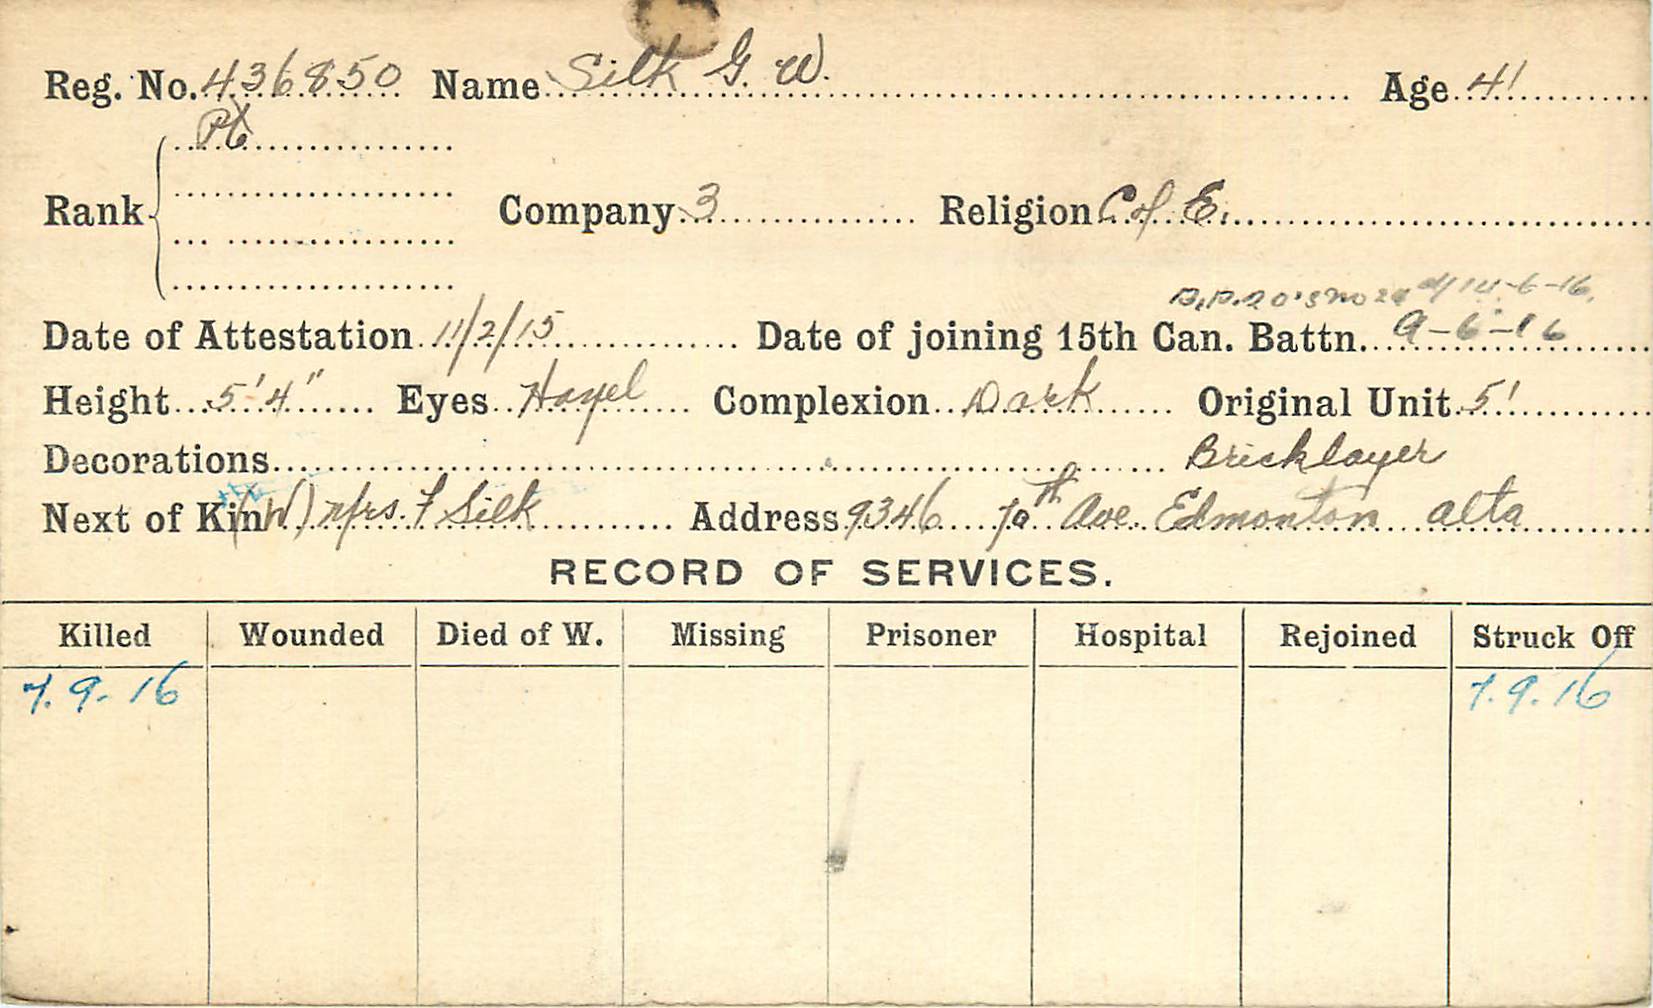 Reg. No. 436850 Name Silk G. W. Age 41
Pte
Rank Company 3 Religion C of E.
14-6-16.
Date of Attestation 11/2/15 Date of joining 15th Can. Battn. 9-6-16
Height 5'4" Eyes Hazel Complexion Dark Original Unit 51
Decorations Bricklayer
Next of Kin (W) Mrs. F Silk Address 9346 Ave. Edmonton Alta
RECORD OF SERVICES.
Killed Wounded Died of W. Missing Prisoner Hospital Rejoined Struck Off
7.9.16 7.9.16